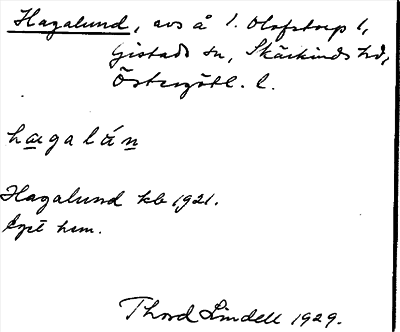 Hagalund, avs å 1. Olofstorp 1,
Gistads sn, Skärkinds hd,
Östergötl. l.
hagalún
Hagalund kb 1921.
Eget hem.
Thord Lindell 1929.